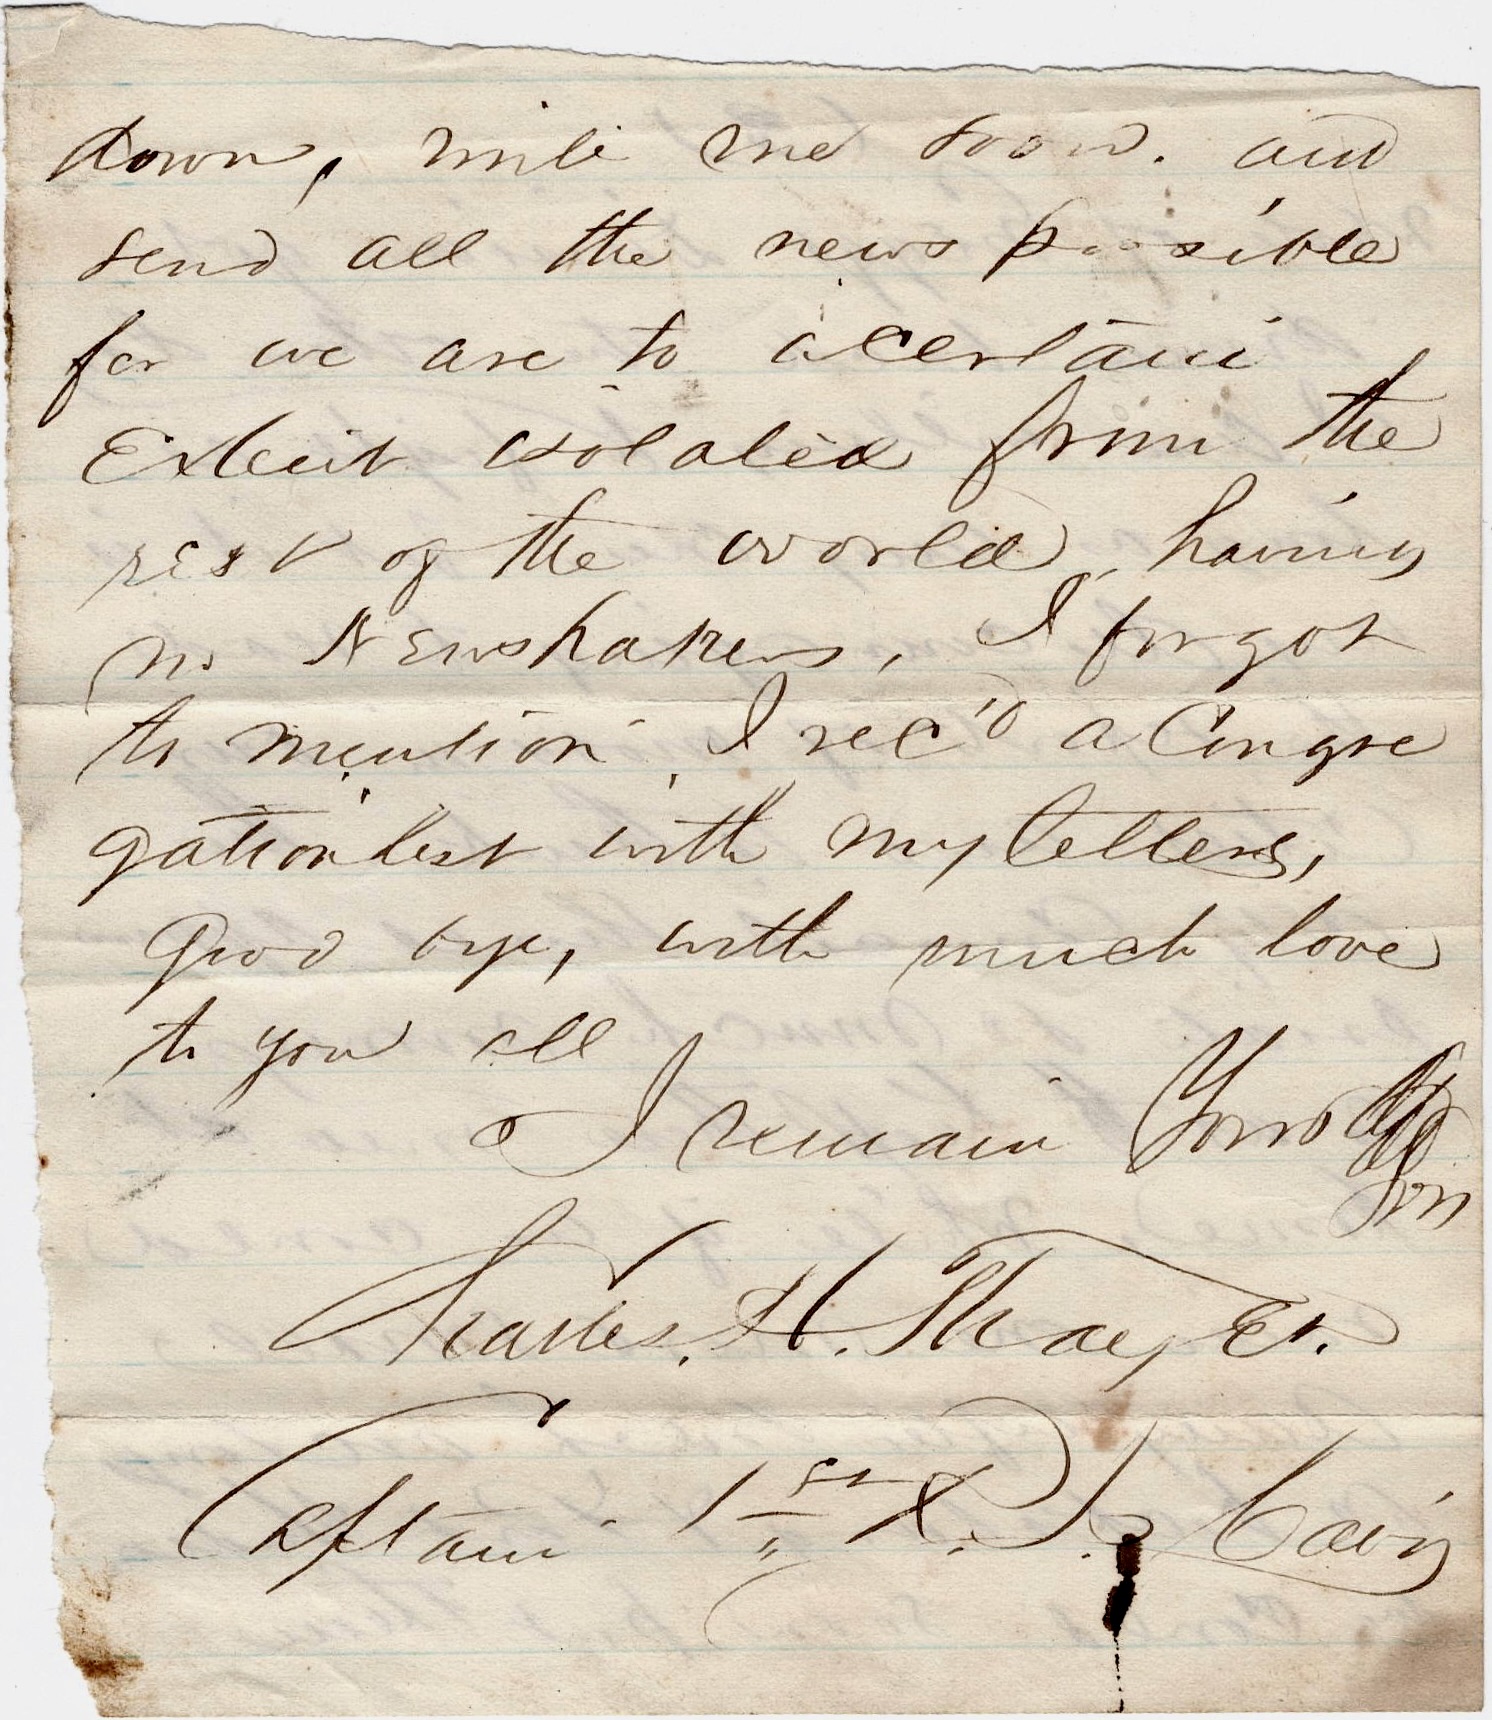 down, write me soon. and
send all the news possible
for we are to a certain
Extent isolated from the
rest of the world, having
no Newspapers, I forgot
to mention I rec'd a Congre
gationlist with my letters,
Good bye, with much love
to you all
I remain Your Aff
Son
Charles. H. Thayer.
Captain 1st R. I. Cavy